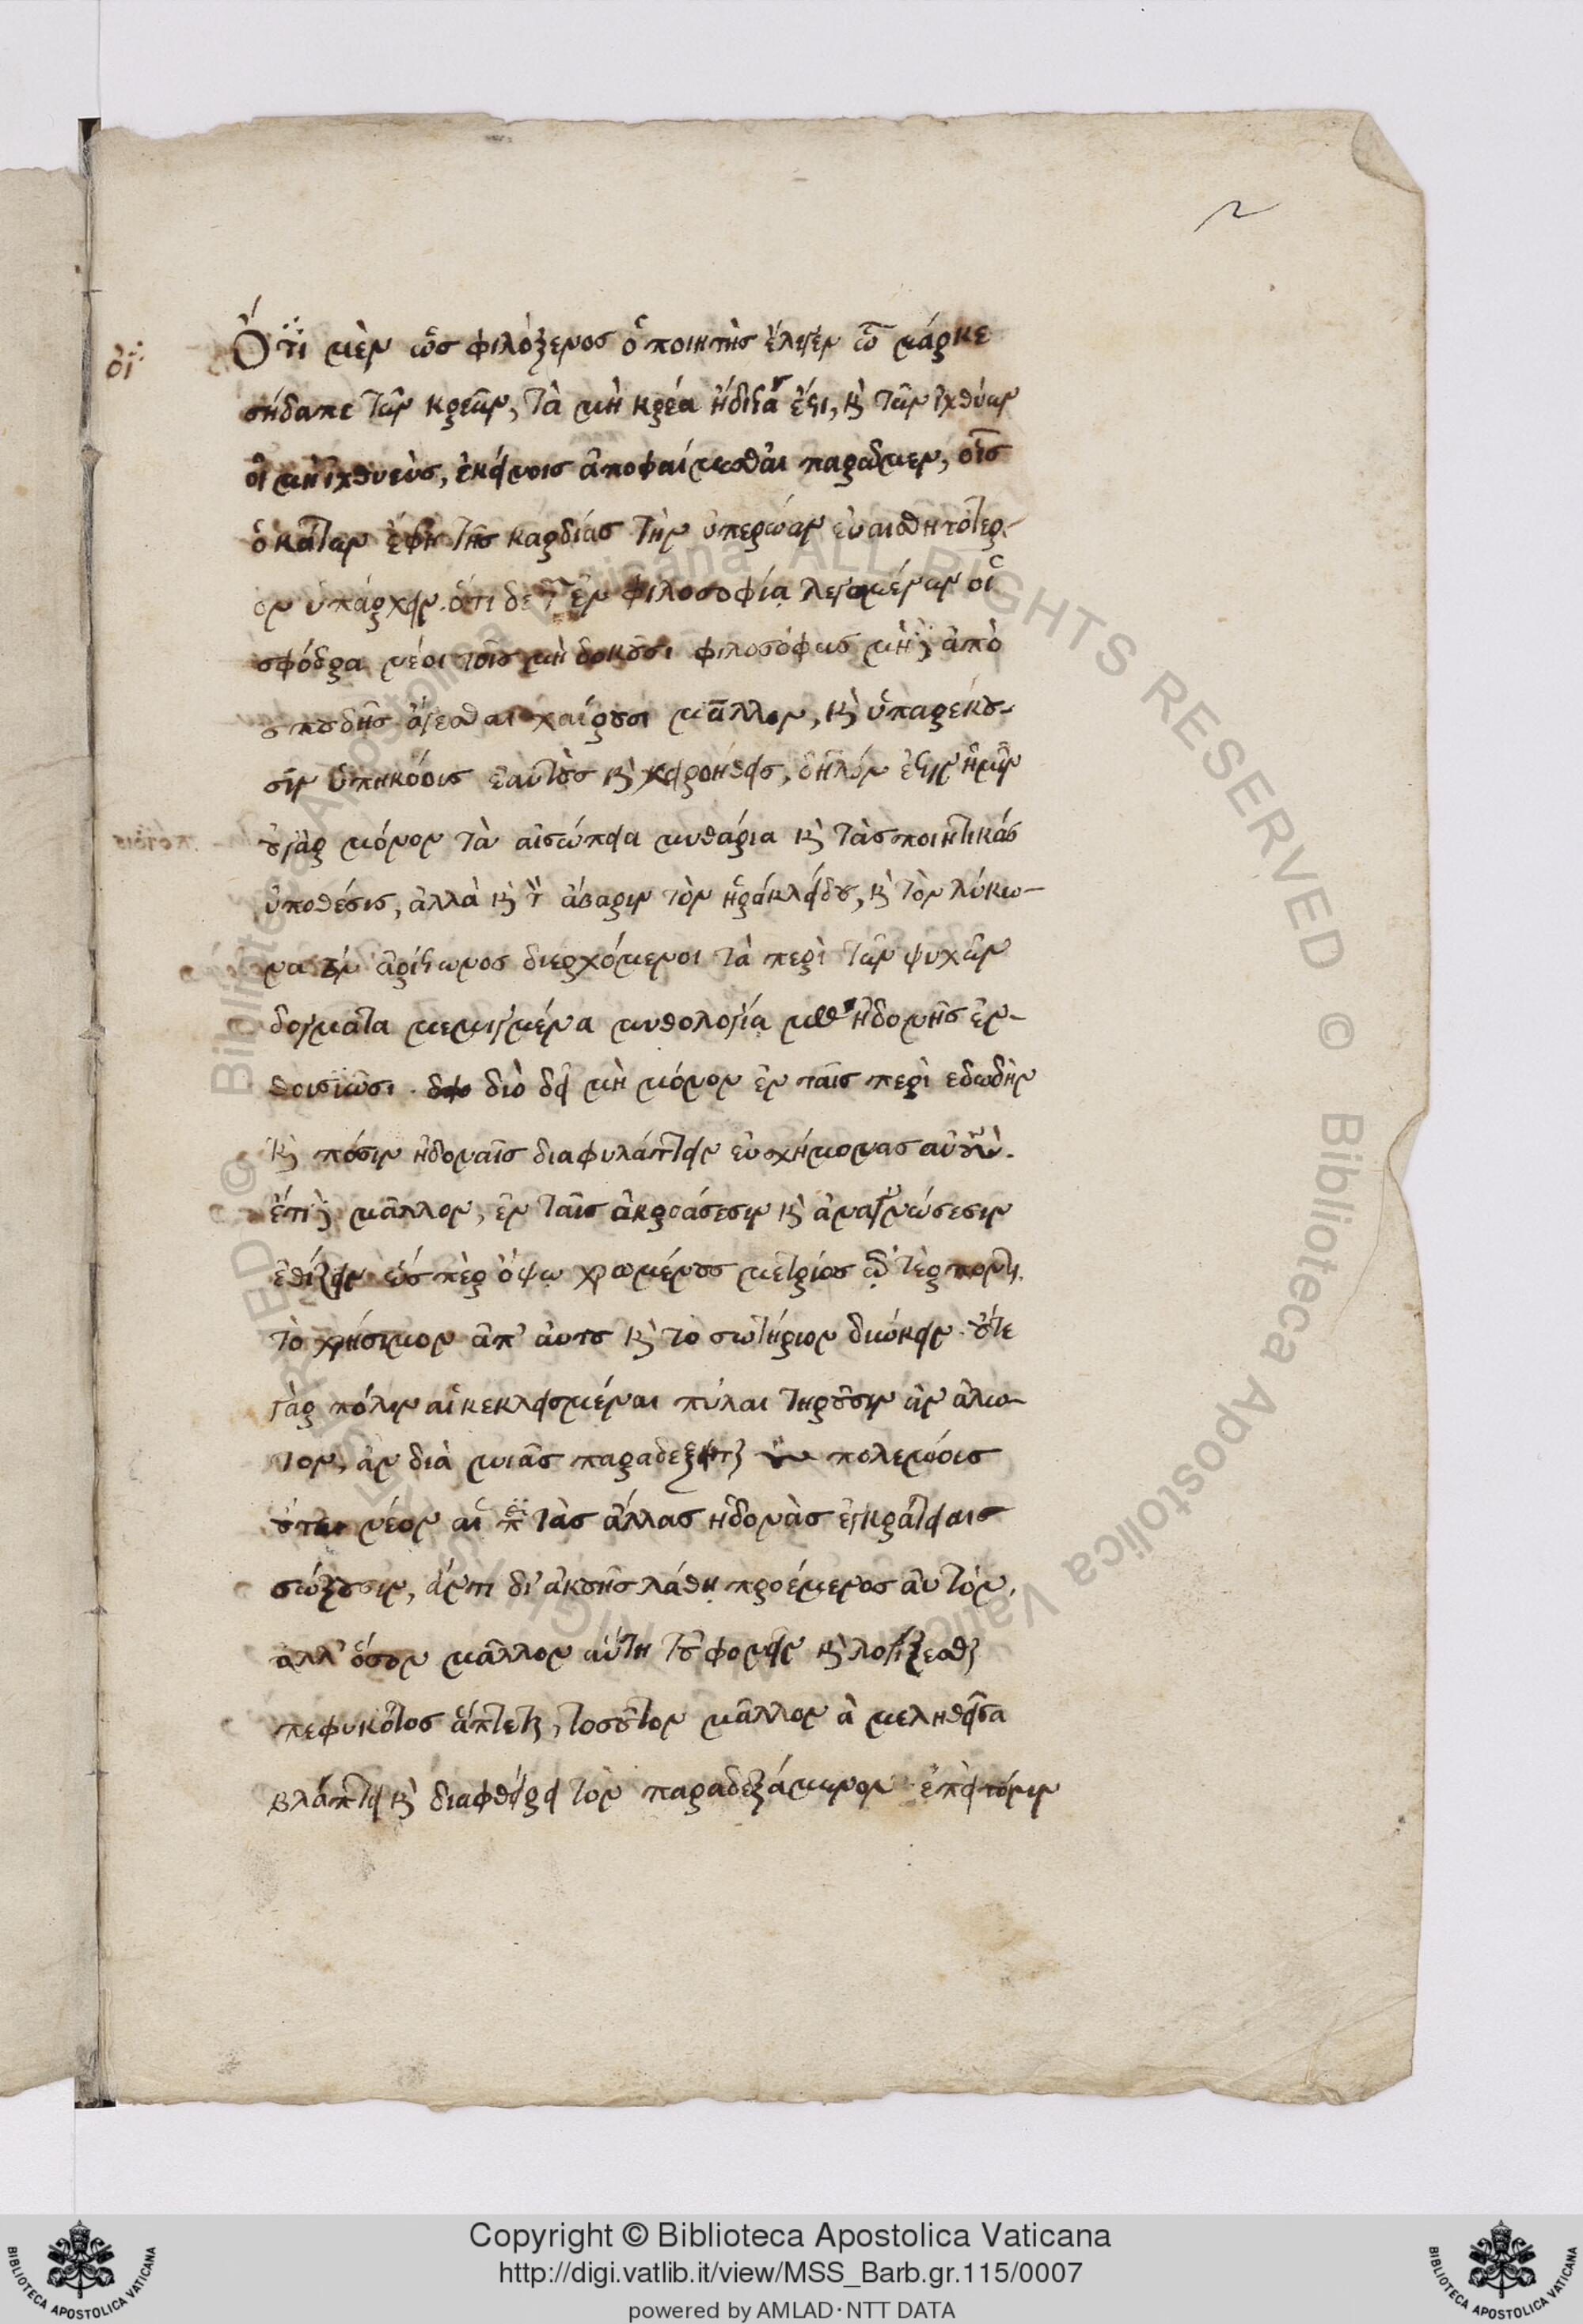 Ὅτι μὲν ὡς φιλόξενος ὁ ποιητὴς ἔλεγεν ὦ μάρκε
σήδαπε τῶν κρεῶν, τὰ μὴ κρέα ἥδιστά ἐστι, κὶ τῶν ἰχθύων
οἱ μὴ ἰχθυεὺς, ἐκείνοις ἀποφαίνεσθαι παρῶμεν, οἷς
ὁ κάτων ἔφη τῆς καρδίας τὴν ὑπερώαν εὐαισθητότερ-
ον ὑπάρχειν. ὅτι δὲ τ ἐν φιλοσοφίᾳ λεγομένων οἱ
σφόδρα νέοι τοῖς μὴ δοκοῦσι φιλοσόφως μὴ δὲ ἀπὸ
σπουδῆς λέγεσθαι χαίρουσι μᾶλλον, κὶ ὑπαρέκου-
σιν ὑπηκόοις ἑαυτοὺς κὶ χειροήθεις, δῆλόν ἐστιν ἡμῖν
οὐ γὰρ μόνον τὰ αἰσώπεια μυθάρια κὶ τὰς ποιητικάς
ὑποθέσεις, ἀλλὰ κὶ τ ἄβαριν τὸν ἡρακλείδου, κὶ τὸν λύκω-
να τὸν ἀρίστωνος διερχόμενοι τὰ περὶ τῶν ψυχῶν
δογματα μεμιγμένα μυθολογίᾳ μεθ ἡδονῆς ἐν-
θουσιῶσι. διὸ δεῖ μὴ μόνον ἐν ταῖς περὶ εδωδὴν
κὶ πόσιν ἡδοναῖς διαφυλάττειν εὐσχήμονας αὐτοὺς.
ἔτι δὲ μᾶλλον, ἐν ταῖς ἀκροάσεσιν κὶ ἀναγνώσεσιν
ἐθίζειν ὥσπερ ὄψῳ χρωμένους μετρίως τῷ τέρποντι,
τὸ χρήσιμον ἀπ' ἀυτοῦ κὶ το σωτήριον διώκειν. οὔτε
γὰρ πόλιν αἱ κεκλεισμέναι πύλαι τηροῦσιν ἀν άλω-
τον, ἀν διὰ μιᾶς παραδέξηται τοὺς πολεμίοις
οὔτε νέον αἱ π τὰς ἄλλας ἡδονὰς ἐγκράτειαις
σώζουσιν, ἄν τι δι' ἀκοῆς λάθῃ προέμενος αὐτόν.
αλλ' ὅσον μᾶλλον αὕτη τοῦ φρονεῖν κὶ λογίζεσθαι
πεφυκότος ἅπτεται, τοσοῦτον μᾶλλον ἀμεληθεῖσα
βλάπτει κὶ διαφθείρει τὸν παραδεξάμενον. ἐπεὶ τοίνυν
Copyright © Biblioteca Apostolica Vaticana
http://digi.vatlib.it/view/MSS_Barb.gr.115/0007
powered by AMLAD·NTT DATA